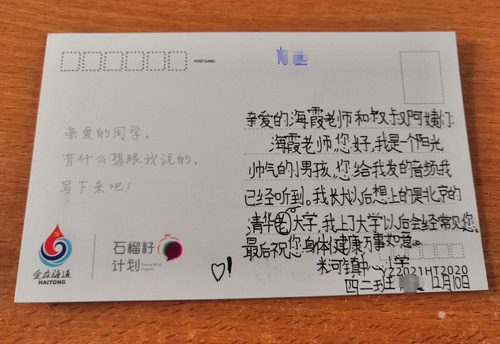 POST CARD
亲爱的同学，
有什么想跟我说的，
写下来吧！
爱在海通
HAITONG
石榴籽
计划
亲爱的海霞老师和叔叔阿姨们:
海霞老师,您好,我是个阳光
帅气的男孩,您给我发的音频我
已经听到。我长大以后想上的是北京的
清华大学,我上了大学以后会经常见您。
最后祝您身体健康万事如意。
米河镇中心小学
YZ2021HT2020
四二班
12月10日